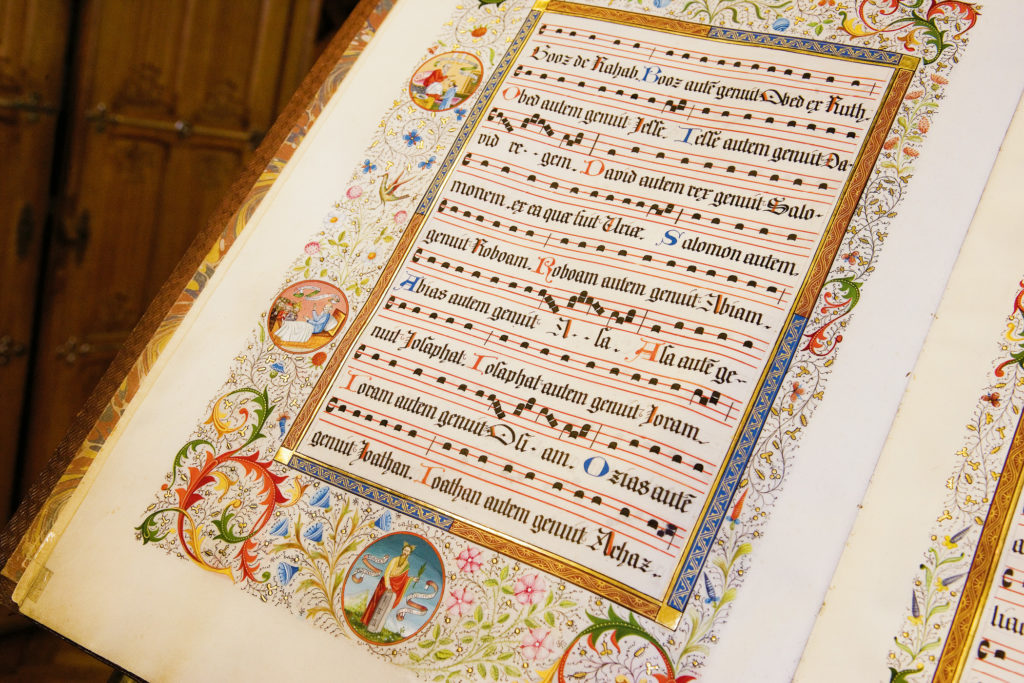 Booz de Rahab. Booz autē genuit Obed ex Ruth.
Obed autem genuit Jesse. Jesse autem genuit Da-
vid re-gem. David autem rex genuit Salo-
monem ex ea quæ fuit Uriæ. Salomon autem
genuit Roboam. Roboam autem genuit Abiam.
Abias autem genuit A-sa. Asa autē ge-
nuit Josaphat. Josaphat autem genuit Joram.
Joram autem genuit Osi-am. Ozias autē
genuit Joathan. Joathan autem genuit Achaz.